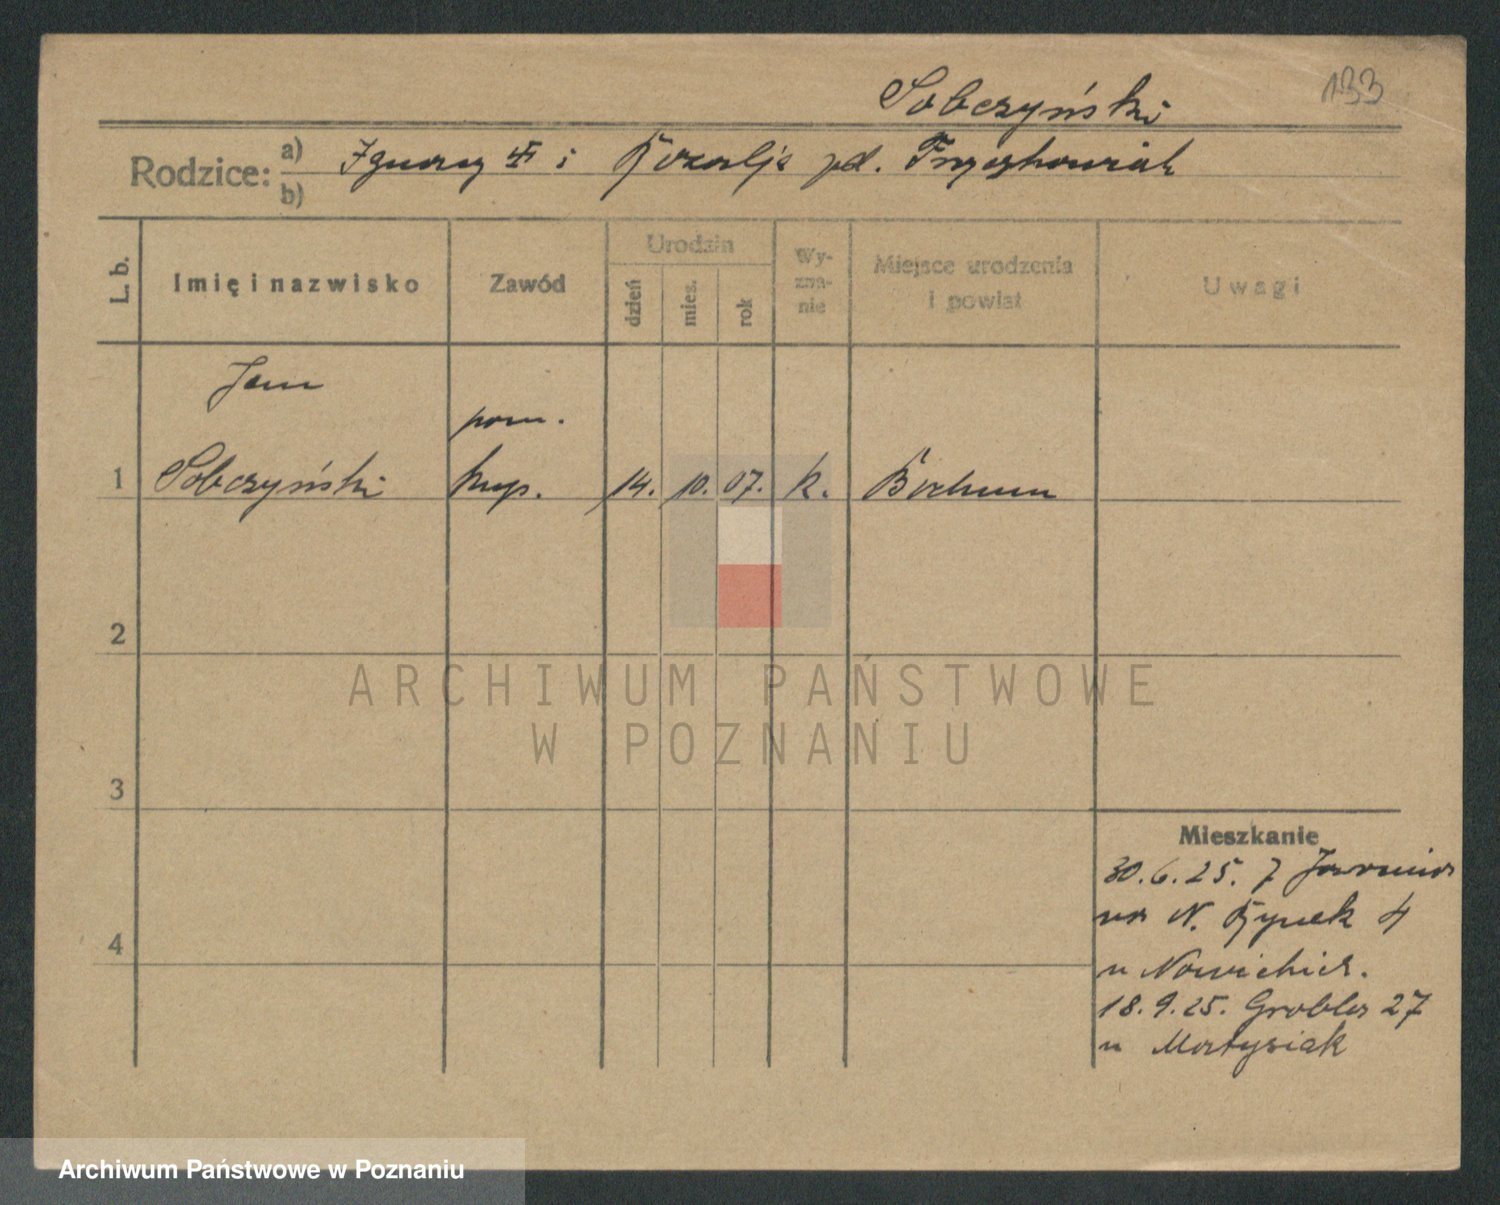 133
Sobczyński
Rodzice: a) Ignacy i Rozalja zd. Trzeszkowiak
b)
L. b. Imię i nazwisko Zawód Urodzin dzień mies. rok Wy-zna-nie Miejsce urodzenia i powiat Uwagi
Jan
pom.
1 Sobczyński kup. 14. 10. 07. k. Bochum
2
ARCHIWUM PAŃSTWOWE
W POZNANIU
3
Mieszkanie
30.6.25. z
na N. Rynek 4
4
u Nowickich.
18.9.25. Grobla 27
u Martysiak
Archiwum Państwowe w Poznaniu